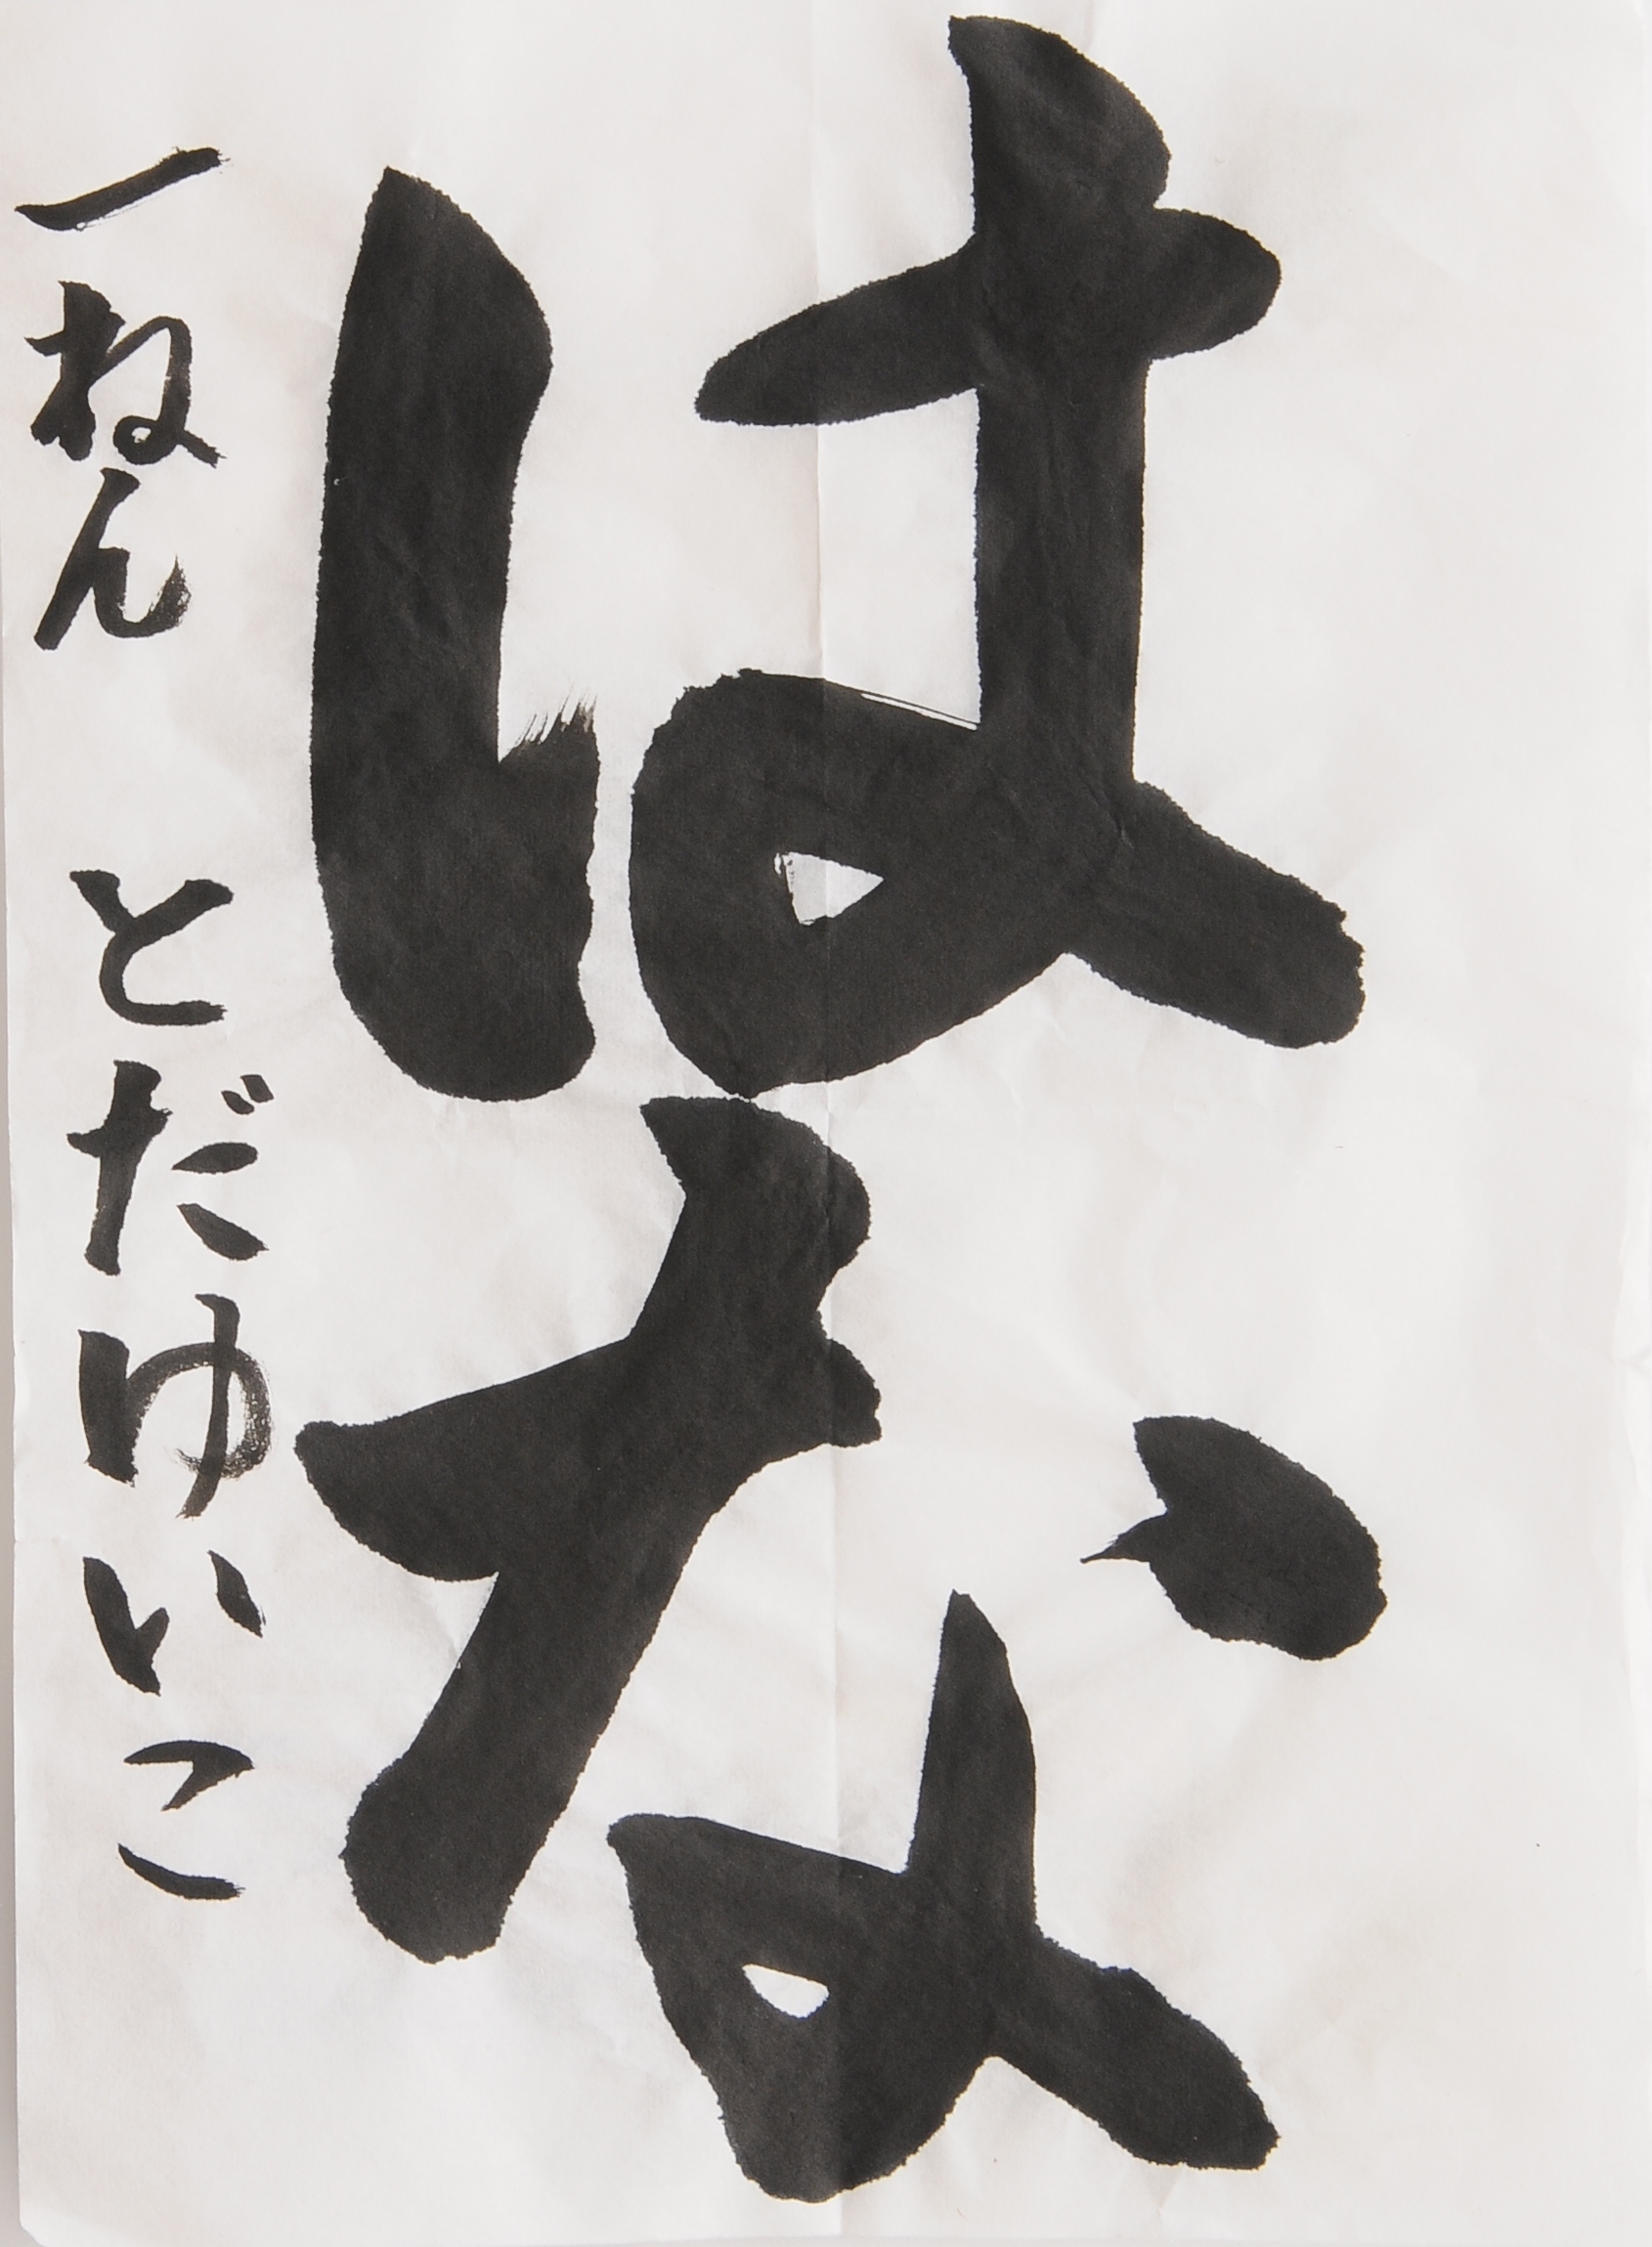 はな
一ねん とだゆいこ